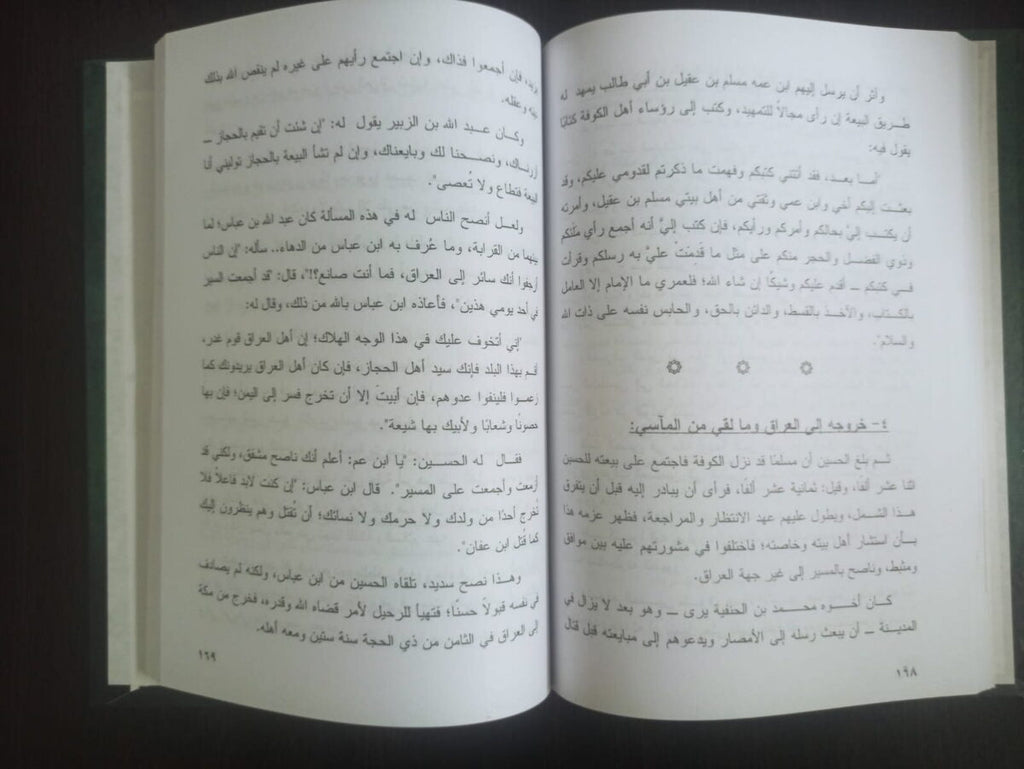 وآثر أن يرسل إليهم ابن عمه مسلم بن عقيل بن أبي طالب يمهد له
طريق البيعة إن رأى مجالاً للتمهيد، وكتب إلى رؤساء أهل الكوفة كتابًا
يقول فيه:
"أما بعد، فقد أتتني كتبكم وفهمت ما ذكرتم لقدومي عليكم، وقد
بعثت إليكم أخي وابن عمي وثقتي من أهل بيتي مسلم بن عقيل، وأمرته
أن يكتب إليّ بحالكم وأمركم ورأيكم، فإن كتب إليّ أنه أجمع رأي ملئكم
وذوي الفضل والحجر منكم على مثل ما قدمتْ عليّ به رسلكم وقرأت
في كتبكم ــ أقدم عليكم وشيكًا إن شاء الله؛ فلعمري ما الإمام إلا العامل
بالكتاب، والآخذ بالقسط، والدائن بالحق، والحابس نفسه على ذات الله
والسلام".
٤- خروجه إلى العراق وما لقي من المآسي:
ثم بلغ الحسين أن مسلمًا قد نزل الكوفة فاجتمع على بيعته للحسين
اثنا عشر ألفًا، وقيل: ثمانية عشر ألفًا، فرأى أن يبادر إليه قبل أن يتفرق
هذا الشمل، ويطول عليهم عهد الانتظار والمراجعة، فظهر عزمه هذا
بأن استشار أهل بيته وخاصته؛ فاختلفوا في مشورتهم عليه بين موافق
ومثبط، وناصح بالمسير إلى غير جهة العراق.
كان أخوه محمد بن الحنفية يرى ــ وهو بعد لا يزال في
المدينة ــ أن يبعث رسله إلى الأمصار ويدعوهم إلى مبايعته قبل قتال
١٦٨
يزيد، فإن أجمعوا فذاك، وإن اجتمع رأيهم على غيره لم ينقص الله بذلك
دينه وعقله.
وكان عبد الله بن الزبير يقول له: "إن شئت أن تقيم بالحجاز ــ
آزرناك، ونصحنا لك وبايعناك، وإن لم تشأ البيعة بالحجاز توليني أنا
البيعة فتطاع ولا تُعصى".
ولعل أنصح الناس له في هذه المسألة كان عبد الله بن عباس؛ لما
بينهما من القرابة، وما عُرف به ابن عباس من الدهاء.. سأله: "إن الناس
أرجفوا أنك سائر إلى العراق، فما أنت صانع؟!"، قال: "قد أجمعت السير
في أحد يومي هذين"، فأعاذه ابن عباس بالله من ذلك، وقال له:
"إني أتخوف عليك في هذا الوجه الهلاك؛ إن أهل العراق قوم غدر،
أقم بهذا البلد فإنك سيد أهل الحجاز، فإن كان أهل العراق يريدونك كما
زعموا فلينفوا عدوهم، فإن أبيتَ إلا أن تخرج فسر إلى اليمن؛ فإن بها
حصونًا وشعابًا ولأبيك بها شيعة".
فقال له الحسين: "يا ابن عم: أعلم أنك ناصح مشفق، ولكني قد
أزمعت وأجمعت على المسير". قال ابن عباس: "إن كنت لابد فاعلاً فلا
تُخرج أحدًا من ولدك ولا حرمك ولا نسائك؛ أن تُقتل وهم ينظرون إليك
كما قتل ابن عفان".
وهذا نصح سديد، تلقاه الحسين من ابن عباس، ولكنه لم يصادف
في نفسه قبولاً حسنًا؛ فتهيأ للرحيل لأمر قضاه الله وقدره، فخرج من مكة
إلى العراق في الثامن من ذي الحجة سنة ستين ومعه أهله.
١٦٩